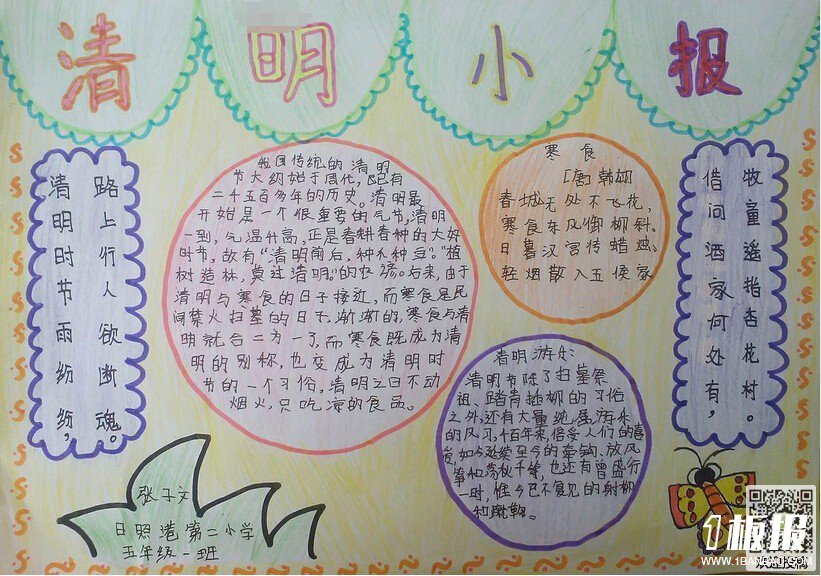 清明小报
清明时节雨纷纷,
路上行人欲断魂。
我国传统的清明
节大约始于周代,已有
二千五百多年的历史。清明最
开始是一个很重要的气节,清明
一到,气温升高,正是春耕春种的大好
时节,故有“清明前后,种瓜种豆”。“植
树造林,莫过清明”的农谚。后来,由于
清明与寒食的日子接近,而寒食是民
间禁火扫墓的日子,渐渐的,寒食与清
明就合二为一了,而寒食既成为清
明的别称,也变成为清明时
节的一个习俗,清明之日不动
烟火,只吃凉的食品。
寒食
[唐]韩翃
春城无处不飞花,
寒食东风御柳斜。
日暮汉宫传蜡烛,
轻烟散入五侯家
清明游乐:
清明节除了扫墓祭
祖、踏青插柳的习俗
之外,还有大量纯属游乐
的风习,千百年来,倍受人们的喜
爱,如今延续至今的牵钩、放风
筝和荡秋千等,也还有曾盛行
一时,惟今已不复见的射柳
和蹴鞠。
借问酒家何处有,
牧童遥指杏花村。
张子文
日照港第二小学
五年级一班
1板报
WWW.1BANBAO.COM
欢迎投稿